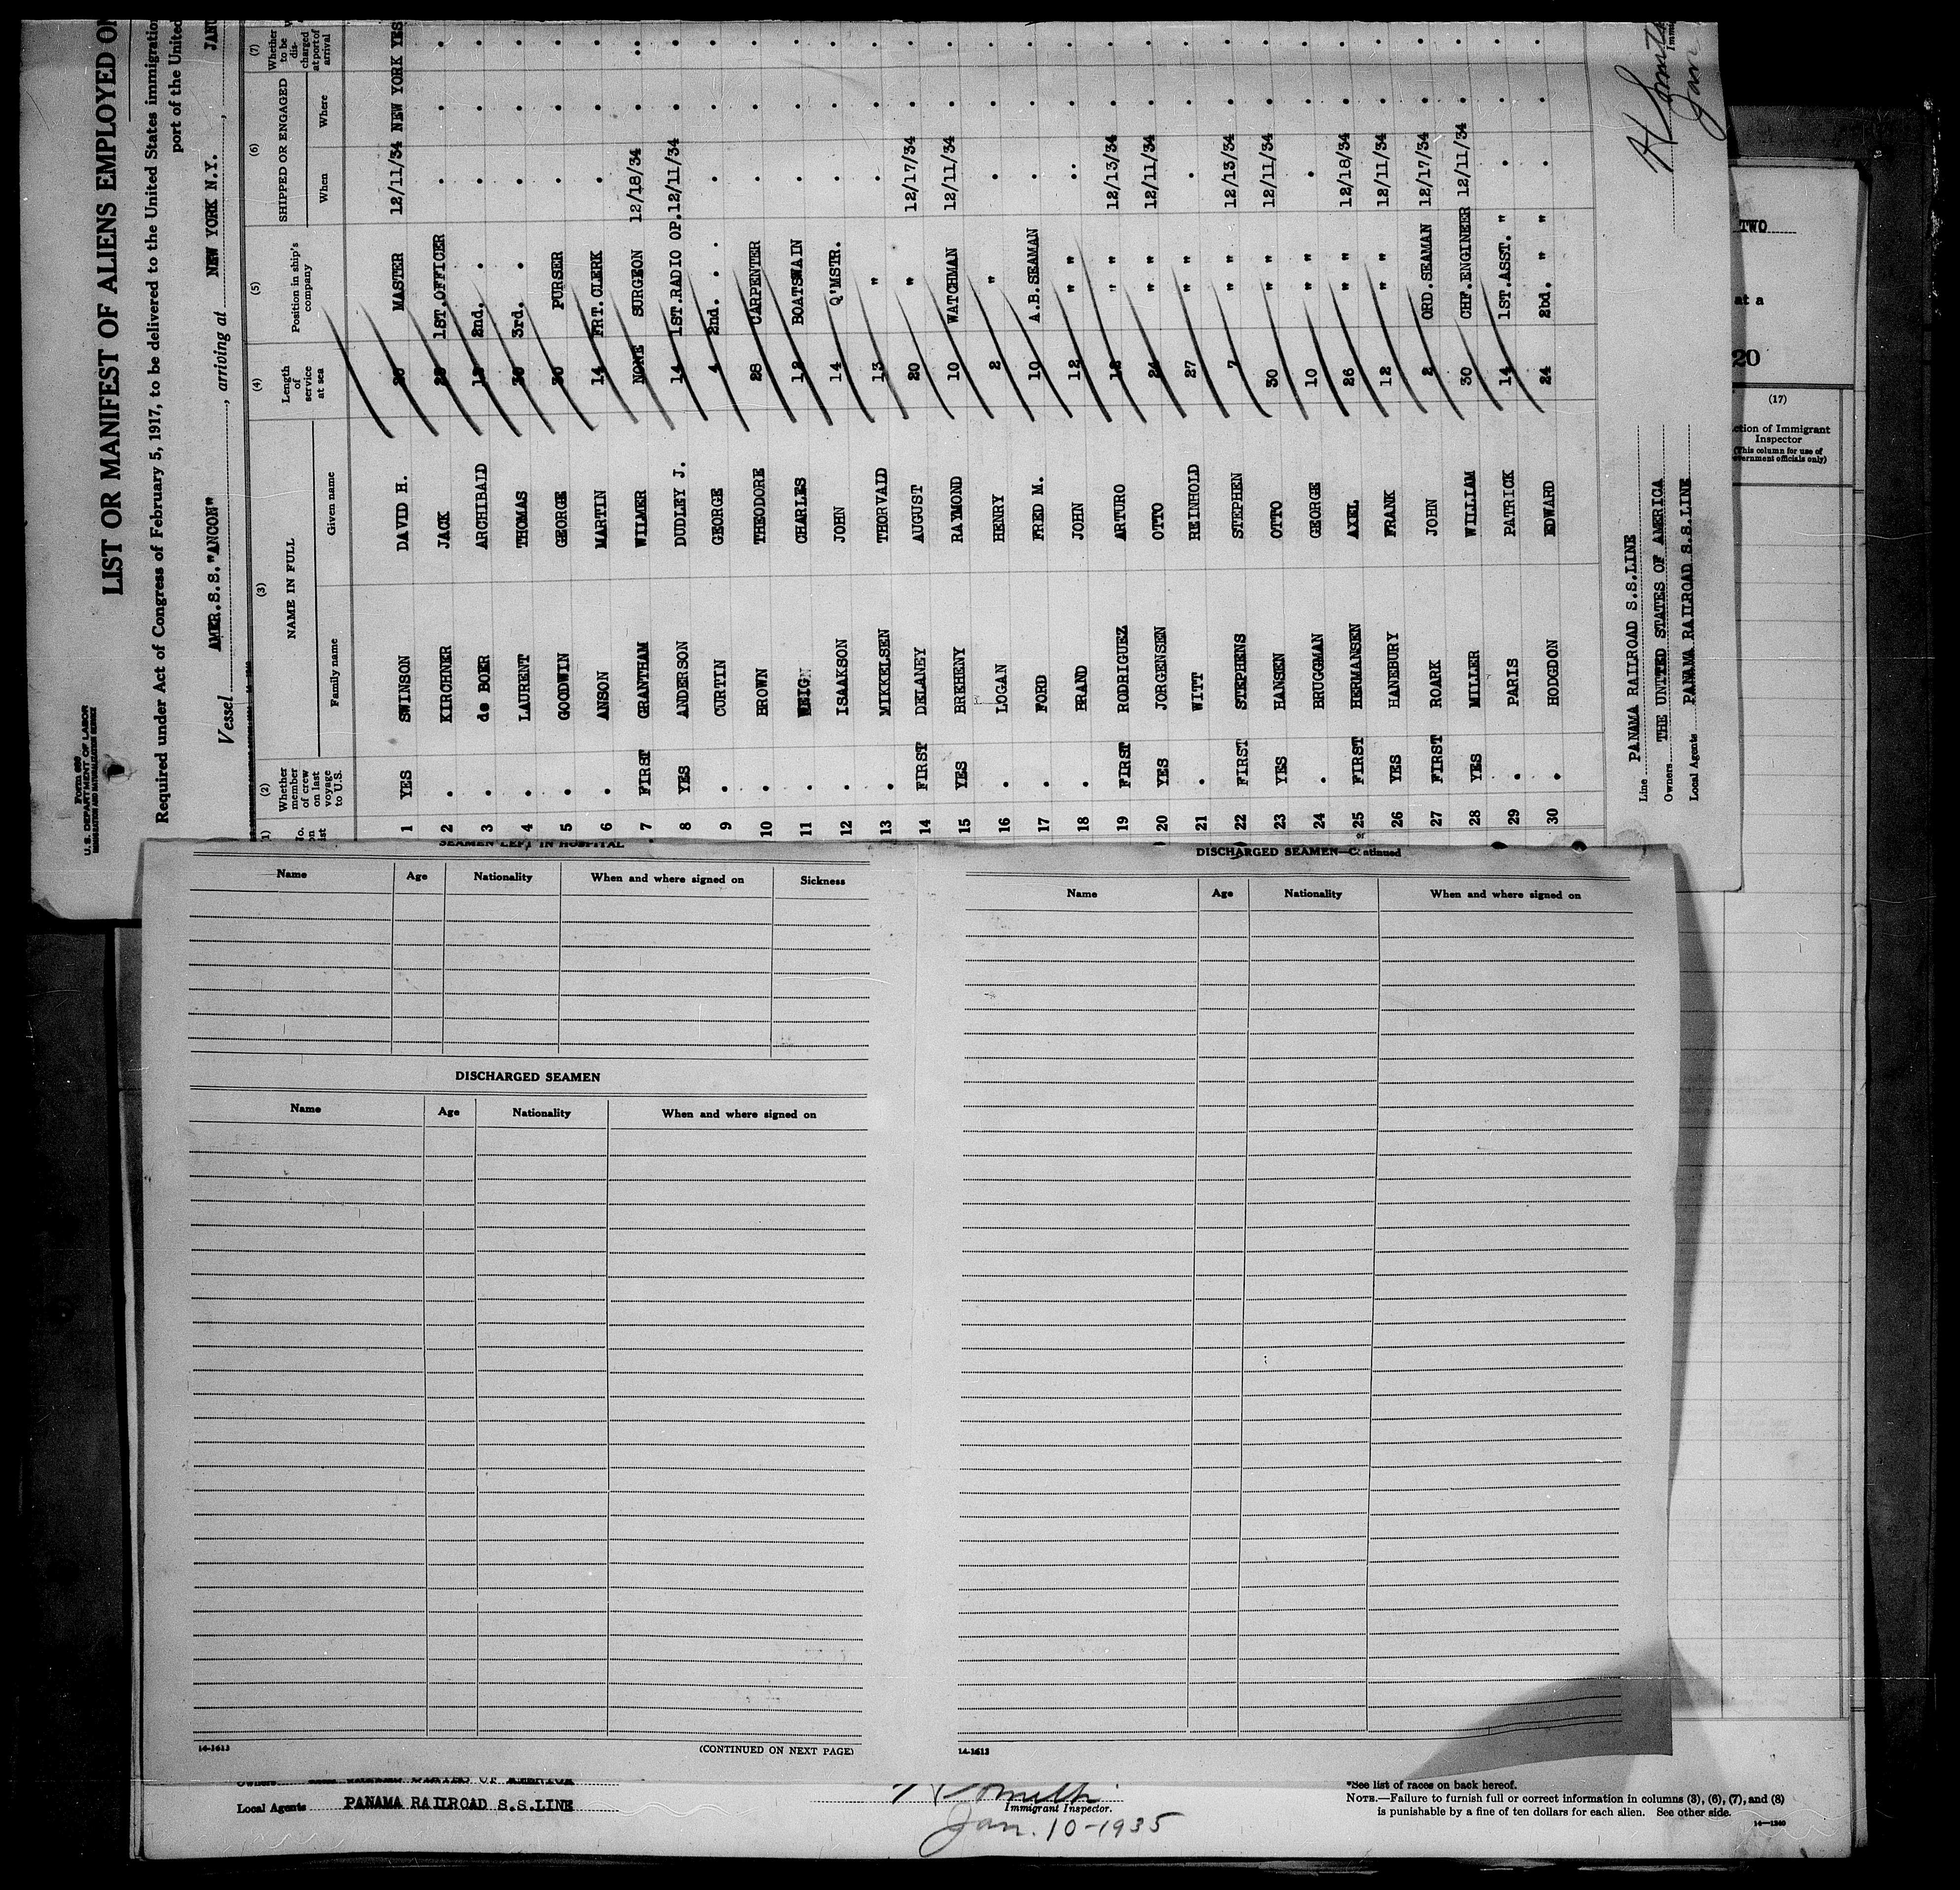 Form 680
U. S. DEPARTMENT OF LABOR
IMMIGRATION AND NATURALIZATION SERVICE
LIST OR MANIFEST OF ALIENS EMPLOYED ON
Required under Act of Congress of February 5, 1917, to be delivered to the United States immigration
port of the United
Vessel AMER.S.S."ANCON", arriving at NEW YORK N.Y. , JANU
(2) (3) (4) (5) (6) (7)
Whether member of crew on last voyage to U.S. NAME IN FULL Length of service at sea Position in ship's company SHIPPED OR ENGAGED Whether to be discharged at port of arrival
Family name Given name When Where
1 YES SWINSON DAVID H. 20 MASTER 12/11/34 NEW YORK YES
2 . KIRCHNER JACK 1ST.OFFICER . . .
3 . de BOER ARCHIBALD 2nd. . . . .
4 . LAURENT THOMAS 30 3rd. . . . .
5 . GOODWIN GEORGE 30 PURSER . . .
6 . ANSON MARTIN 14 FRT.CLERK . . .
7 FIRST GRANTHAM WILMER NONE SURGEON 12/18/34 . ..
8 YES ANDERSON DUDLEY J. 14 1ST.RADIO OP. 12/11/34 . .
9 . CURTIN GEORGE 4 2nd. . . . . .
10 . BROWN THEODORE 28 CARPENTER . . .
11 . CHARLES 12 BOATSWAIN . . .
12 . ISAAKSON JOHN 14 Q'MSTR. . . .
13 . MIKKELSEN THORVALD 13 " . . .
14 FIRST DELANEY AUGUST 20 " 12/17/34 . .
15 YES BREHENY RAYMOND 10 WATCHMAN 12/11/34 . .
16 . LOGAN HENRY 2 " . . .
17 . FORD FRED M. 10 A.B.SEAMAN . . .
18 . BRAND JOHN 12 " " .. . .
19 FIRST RODRIGUEZ ARTURO 12 " " 12/13/34 . .
20 YES JORGENSEN OTTO 24 " " 12/11/34 . .
21 . WITT REINHOLD 27 " " . . .
22 FIRST STEPHENS STEPHEN 7 " " 12/13/34 . .
23 YES HANSEN OTTO 30 " " 12/11/34 . .
24 . BRUGGMAN GEORGE 10 " " . . .
25 FIRST HERMANSEN AXEL 26 " " 12/18/34 . .
26 YES HANEBURY FRANK 12 " " 12/11/34 . .
27 FIRST ROARK JOHN 2 ORD.SEAMAN 12/17/34 . .
28 YES MILLER WILLIAM 30 CHF.ENGINER 12/11/34 . .
29 . PARIS PATRICK 14 1ST.ASST. " . . .
30 . HODGDON EDWARD 24 2bd. " " . . .
Line PANAMA RAILROAD S.S.LINE
Owners THE UNITED STATES OF AMERICA
Local Agents PANAMA RAILROAD S.S.LINE
H Smith
Jan
TWO
at a
20
(17)
Action of Immigrant Inspector
(This column for use of Government officials only)
SEAMEN LEFT IN HOSPITAL
Name Age Nationality When and where signed on Sickness
DISCHARGED SEAMEN
Name Age Nationality When and where signed on
14-1613 (CONTINUED ON NEXT PAGE)
DISCHARGED SEAMEN—Continued
Name Age Nationality When and where signed on
14-1613
Owners THE UNITED STATES OF AMERICA
Local Agents PANAMA RAILROAD S.S.LINE
H Smith
Immigrant Inspector.
Jan. 10-1935
*See list of races on back hereof.
NOTE.—Failure to furnish full or correct information in columns (3), (6), (7), and (8)
is punishable by a fine of ten dollars for each alien. See other side.
14—1240